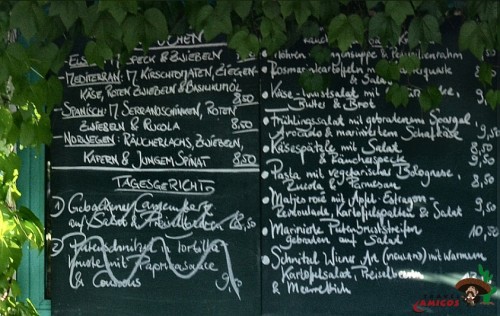 CHEN
SPECK & ZWIEBELN
MEDITERRAN: M KIRSCHTOMATEN, ZIEGEN-
KÄSE, ROTEN ZWIEBELN & BASILIKUMÖL
8,50
SPANISCH: M SERRANOSCHINKEN, ROTEN
ZWIEBELN & RUCOLA 8,50
NORWEGEN: RÄUCHERLACHS, ZWIEBELN,
KAPERN & JUNGEM SPINAT 8,50
TAGESGERICHTE
1) Gebackener Camembert
auf Salat & Preiselbeeren 8,50
2) Putenschnitzel in Tortilla
kruste mit Paprikasauce
& Couscous
suppe & Petersilienrahm
Rosmarinkartoffeln
& Salat
Käse-Wurstsalat mit
Butter & Brot 9,
Frühlingssalat mit gebratenem Spargel
Avocado & mariniertem Schafskäse 9,50
Käsespätzle mit Salat
& Räucherspeck
Pasta mit vegetarischer Bolognese,
Rucola & Parmesan 8,50
Matjes rosé mit Apfel-Estragon-
Remoulade, Kartoffelpuffer & Salat 9,50
Marinierte Putenbruststreifen
gebraten auf Salat 10,50
Schnitzel Wiener Art (NEULAND) mit warmem
Kartoffelsalat, Preiselbeeren
& Meerrettich
AMIGOS